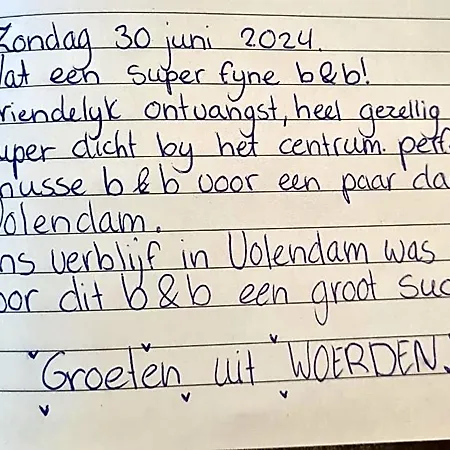 Zondag 30 juni 2024.
Wat een super fyne b&b!
vriendelyk ontvangst, heel gezellig
super dicht by het centrum. perf
knusse b&b voor een paar da
Volendam.
Ons verblijf in Volendam was
door dit b&b een groot suc
Groeten uit WOERDEN.